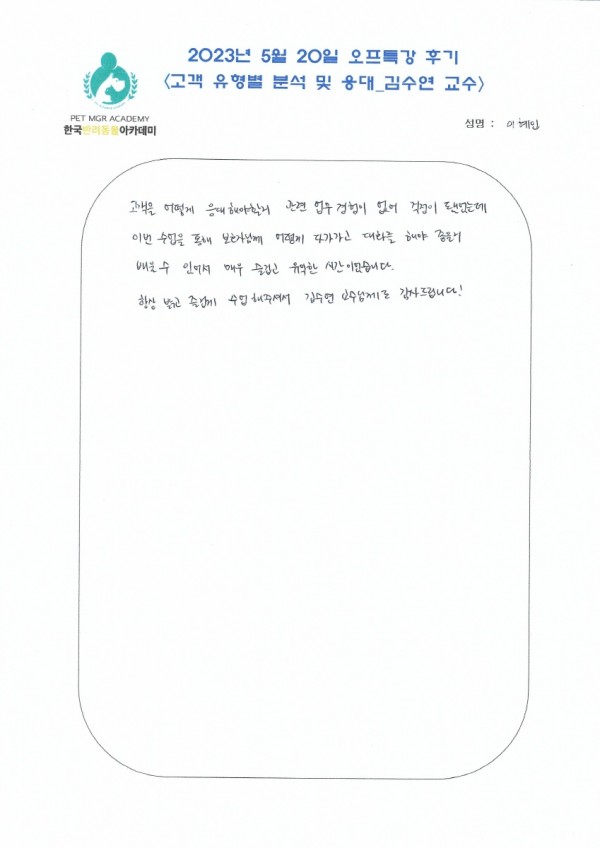 2023년 5월 20일 오프특강 후기
<고객 유형별 분석 및 응대_김수연 교수>
PET MGR ACADEMY
한국반려동물아카데미
성명 : 이혜인
고객을 어떻게 응대해야할지 관련 업무 경험이 없어 걱정이 됐었는데
이번 수업을 통해 보호자님께 어떻게 다가가고 대화를 해야 좋을지
배울 수 있어서 매우 즐겁고 유익한 시간이었습니다.
항상 밝고 즐겁게 수업해주셔서 김수연 교수님께도 감사드립니다!